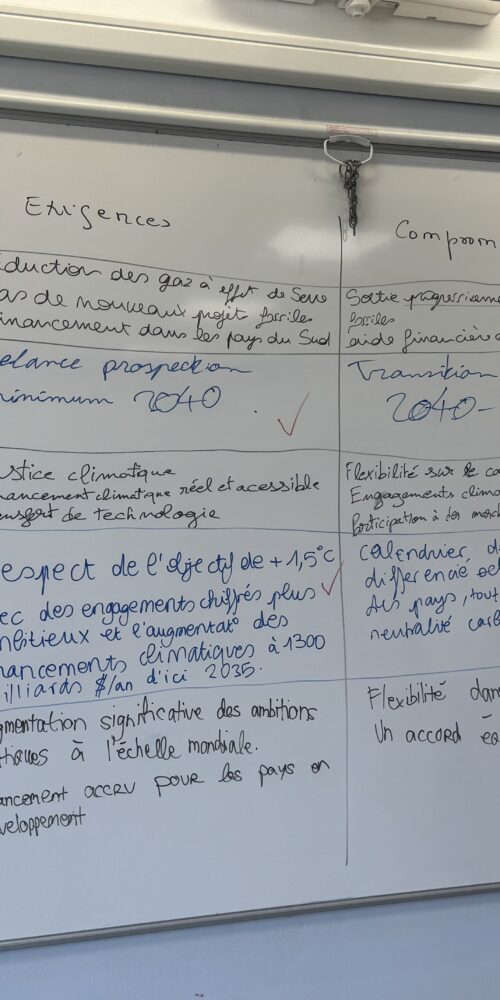 Exigences
éduction des gaz à effet de Serre
as de nouveaux projet fossiles
inancement dans les pays du Sud
elance prospection
inimum 2040
stice climatique
nancement climatique réel et acessible
ansfert de technologie
espect de l'objectif de +1,5°C
ec des engagements chiffrés plus
mbitieux et l'augmentat° des
nancements climatiques à 1300
illiards $/an d'ici 2035.
gmentation significative des ambitions
tiques à l'échelle mondiale.
ancement accru pour les pays en
veloppement
Comprom
Sortie progressiveme
fossiles
aide financière
Transition
2040-
Flexibilité sur le ca
Engagements clima
Participation à des march
calendrier, d
differencié sel
des pays, tout
neutralité carb
Flexibilité dan
Un accord éq